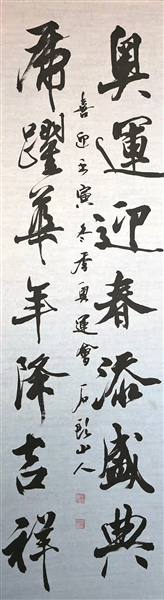 奥運迎春添盛典
虎躍華年降吉祥
喜迎壬寅冬季奥運會 石頭山人